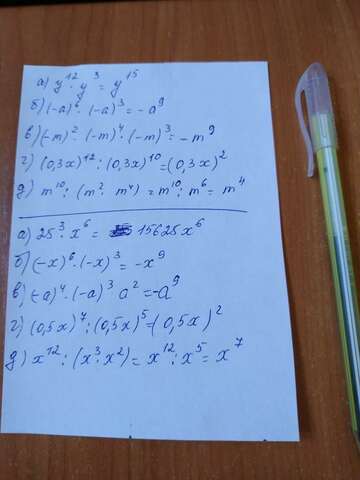 а) y¹² · y³ = y¹⁵
б) (-a)⁶ · (-a)³ = -a⁹
в) (-m)² · (-m)⁴ · (-m)³ = -m⁹
г) (0,3x)¹² : (0,3x)¹⁰ = (0,3x)²
д) m¹⁰ : (m² · m⁴) = m¹⁰ : m⁶ = m⁴
а) 25³ · x⁶ = 15625x⁶
б) (-x)⁶ · (-x)³ = -x⁹
в) (-a)⁴ · (-a)³ a² = -a⁹
г) (0,5x)⁷ : (0,5x)⁵ = (0,5x)²
д) x¹² : (x³ · x²) = x¹² : x⁵ = x⁷